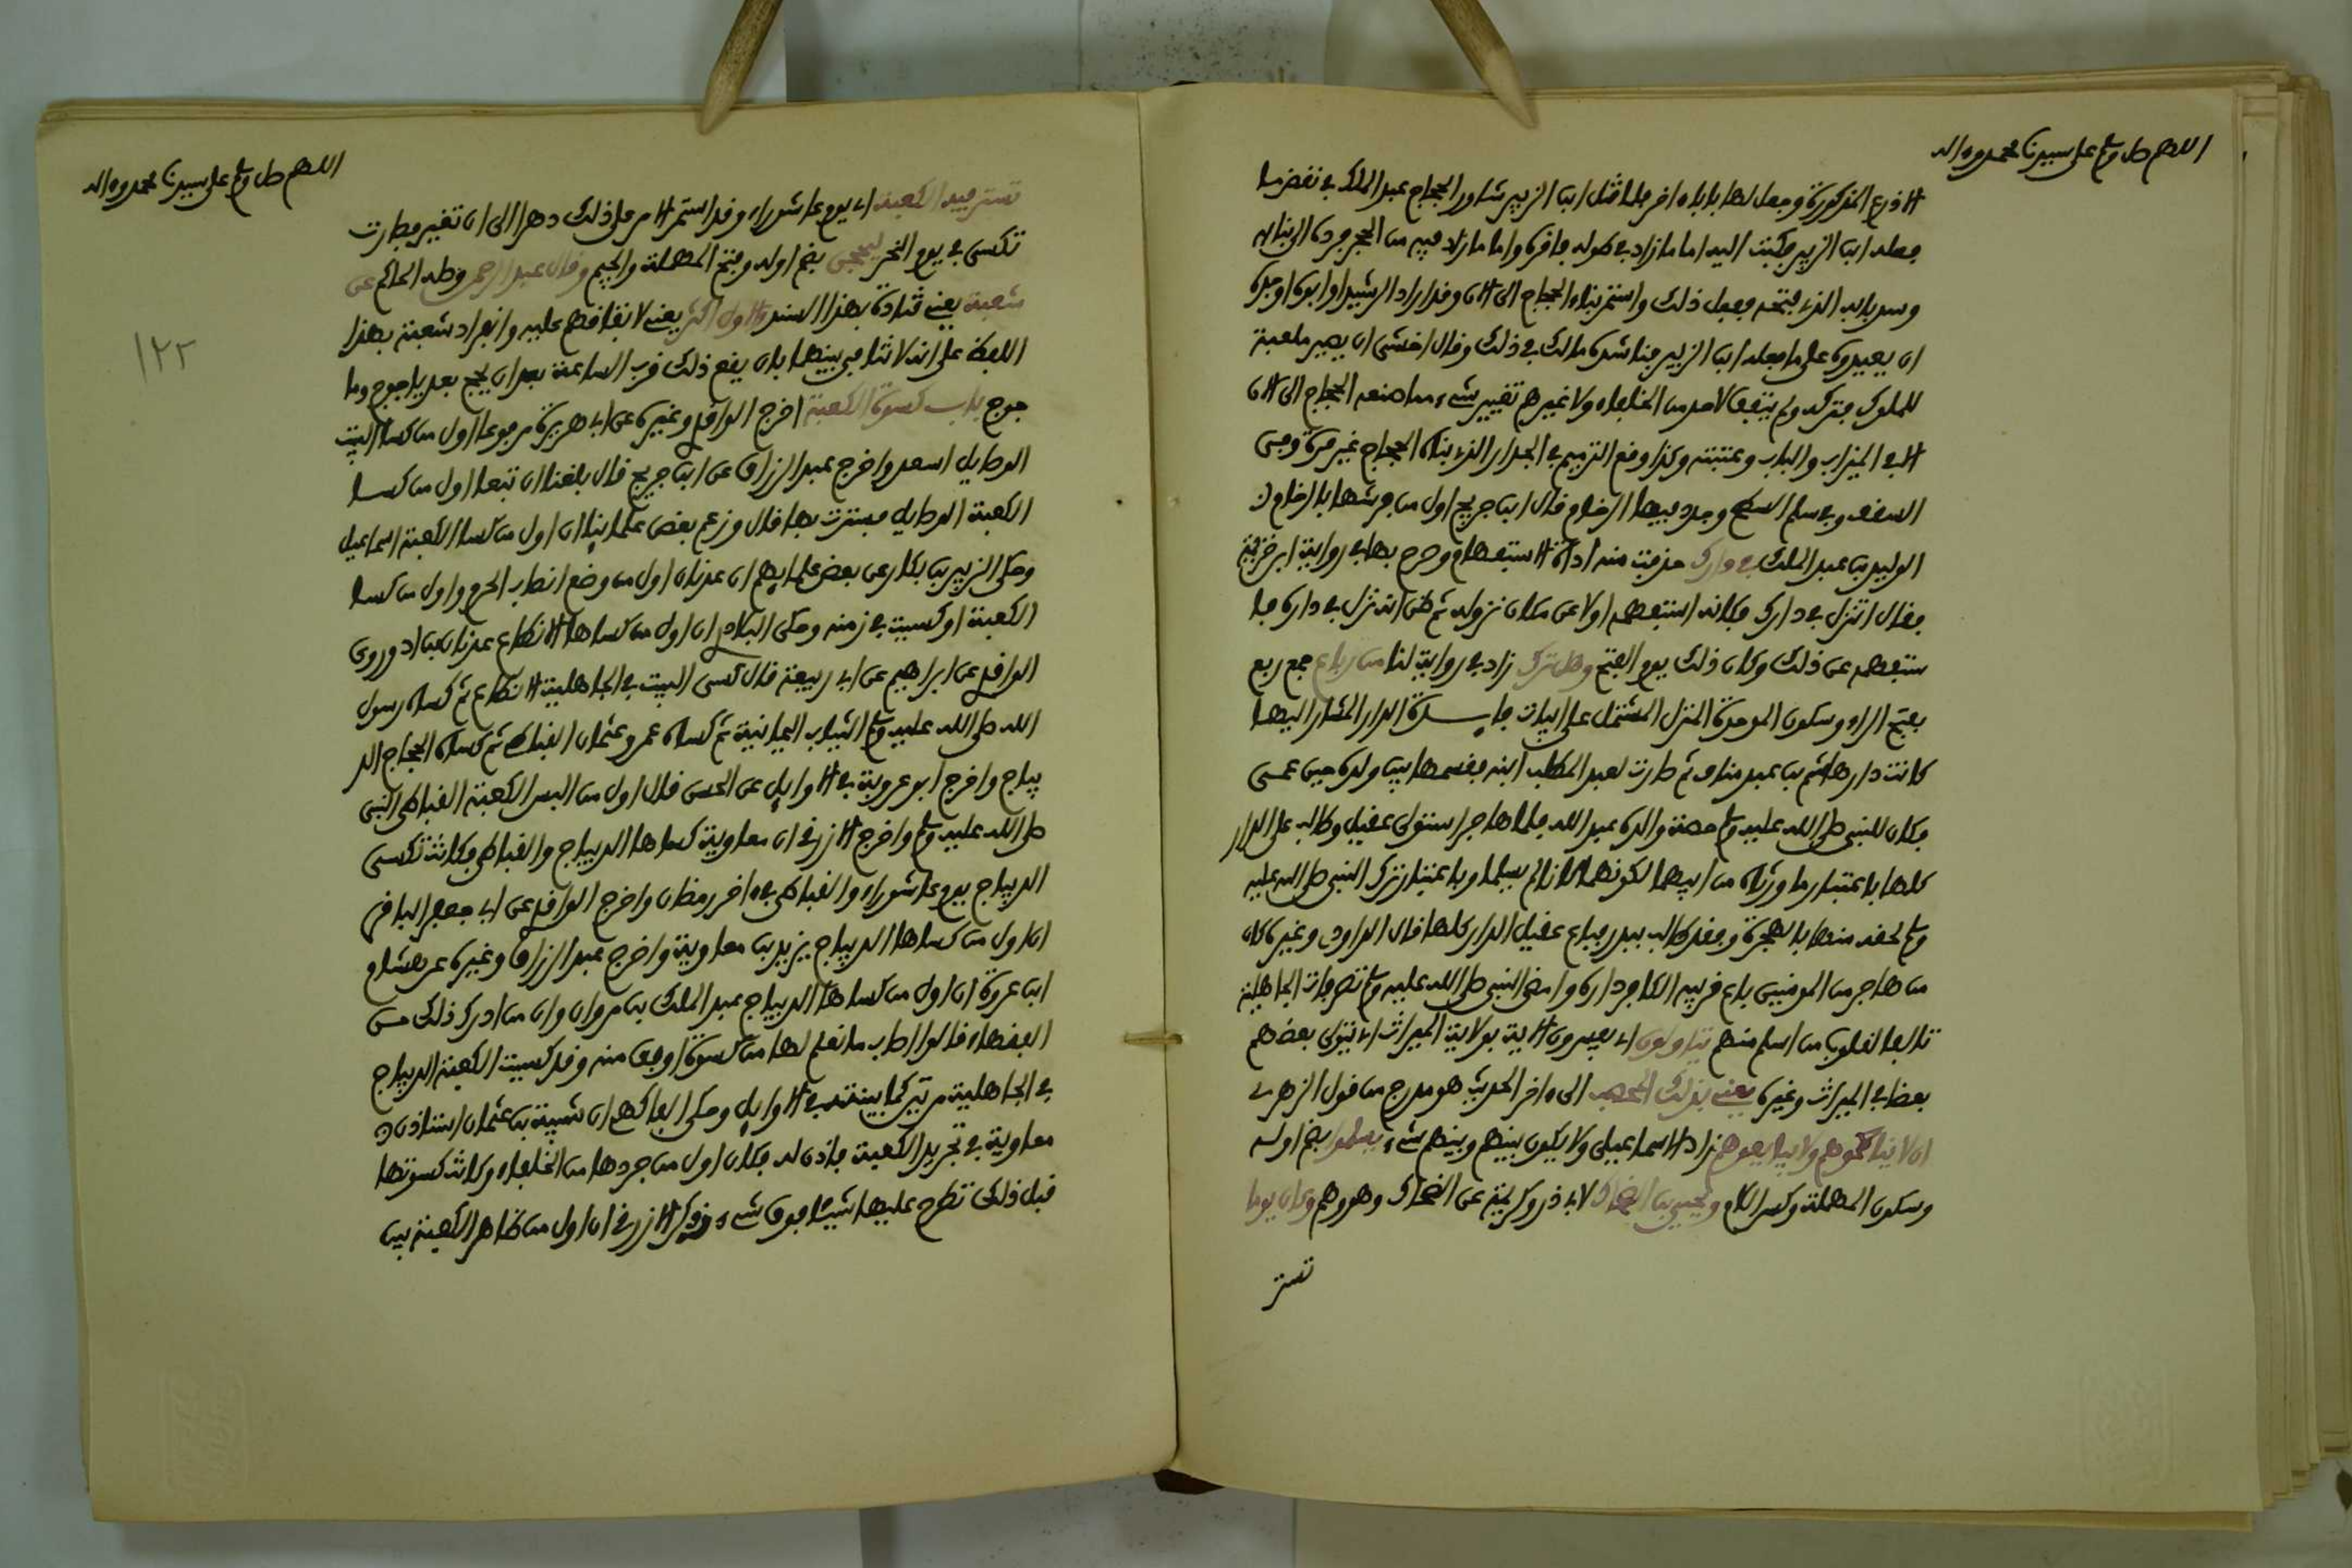 اللهم صل وسلم على سيدنا محمد وءاله
الاذرع المذكورة وجعل لها بابا ءاخر فلما قتل ابن الزبير شاور الحجاج عبد الملك في نقض ما
فعله ابن الزبير فكتب اليه اما ما زاد في طوله فاقره واما ما زاد فيه من الحجر فرده الى بنايه
وسد بابه الذي فتحه ففعل ذلك واستمر بناء الحجاج الى الان وقد اراد الرشيد او ابوه او جده
ان يعيدوه على ما فعله ابن الزبير فناشده مالك في ذلك وقال اخشى ان يصير ملعبة
للملوك فتركه ولم يتفق لاحد من الخلفاء ولا غيرهم تغيير شيء مما صنعه الحجاج الى الان
الا في الميزاب والباب وعتبته وكذا وقع الترميم في الجدار الذي بناه الحجاج غير مرة وفي
السقف وفي سلم السطح وجدد فيها الرخام قال ابن جريج اول من فرشها بالرخام
الوليد بن عبد الملك في دارك حذفت منه اداة الاستفهام وصرح بها في رواية ابن خزيمة
فقال اتنزل في دارك فكانه استفهم اولا عن مكان نزوله ثم ظن انه نزل في داره فا
ستفهم عن ذلك وكان ذلك يوم الفتح وهل ترك زاد في رواية لنا من رباع جمع ربع
بفتح الراء وسكون الموحدة المنزل المشتمل على ابيات فايدة الدار المشار اليها
كانت دار هاشم بن عبد مناف ثم صارت لعبد المطلب ابنه فقسمها بين ولده حين عمي
فكان للنبي صلى الله عليه وسلم حصة والده عبد الله فلما هاجر استولى عقيل وطالب على الدار
كلها باعتبار ما ورثاه من ابيهما لكونهما كانا لم يسلما وباعتبار ترك النبي صلى الله عليه
وسلم لحقه منها بالهجرة وفقد طالب ببدر فباع عقيل الدار كلها قال الداودي وغيره كان
من هاجر من المومنين باع قريبه الكافر داره وامضى النبي صلى الله عليه وسلم تصرفات الجاهلية
تالفا لقلوب من اسلم منهم يتاولون اي يفسرون الاية بولاية الميراث اي يتولى بعضهم
بعضا في الميراث وغيره يعني بذلك المحصب الى ءاخر الحديث هو مدرج من قول الزهري
ان لا يناكحوهم ولا يبايعوهم زاد الاسماعيلي ولا يكون بينهم وبينهم شيء يسلموا بضم اوله
وسكون المهملة وكسر اللام ويحيى بن الضحاك لابي ذر وكريمة عن الضحاك وهو وهم وكان يوما
تستر
اللهم صل وسلم على سيدنا محمد وءاله
١٢٢
تستر فيه الكعبة اي يوم عاشوراء وقد استمر الامر على ذلك دهرا الى ان تغير فصارت
تكسى في يوم النحر ليحجن بضم اوله وفتح المهملة والجيم وقال عبد الرحمن وصله الحاكم عن
شعبة يعني قتادة بهذا السند والاول اكثر يعني لاتفاقهم عليه وانفراد شعبة بهذا
اللفظ على انه لا تنافي بينهما بان يقع ذلك قرب الساعة بعد ان يحج بعد ياجوج وما
جوج باب كسوة الكعبة اخرج الواقدي وغيره عن ابي هريرة مرفوعا اول من كسا البيت
الوصايل اسعد واخرج عبد الرزاق عن ابن جريج قال بلغنا ان تبعا اول من كسا
الكعبة الوصايل فسترت بها قال وزعم بعض علماينا ان اول من كسا الكعبة اسماعيل
وحكى الزبير بن بكار عن بعض علمايهم ان عدنان اول من وضع انصاب الحرم واول من كسا
الكعبة او كسيت في زمنه وحكى البلاذري ان اول من كساها الانطاع عدنان بن اد وروى
الواقدي عن ابراهيم عن ابي ربيعة قال كسي البيت في الجاهلية الانطاع ثم كساه رسول
الله صلى الله عليه وسلم الثياب اليمانية ثم كساه عمر وعثمان القباطي ثم كساه الحجاج الد
يباج واخرج ابو عروبة في الاوايل عن الحسن قال اول من البس الكعبة القباطي النبي
صلى الله عليه وسلم واخرج الازرقي ان معاوية كساها الديباج والقباطي فكانت تكسى
الديباج يوم عاشوراء والقباطي في ءاخر رمضان واخرج الواقدي عن ابي جعفر الباقر
ان اول من كساها الديباج يزيد بن معاوية واخرج عبد الرزاق وغيره عن هشام
ابن عروة ان اول من كساها الديباج عبد الملك بن مروان وان من ادرك ذلك من
الفقهاء قالوا اصاب ما نعلم لها من كسوة اوفق منه وقد كسيت الكعبة الديباج
في الجاهلية مرتين كما بينته في الاوايل وحكى الفاكهي ان شيبة بن عثمان استاذن
معاوية في تجريد الكعبة فاذن له فكان اول من جردها من الخلفاء وكانت كسوتها
قبل ذلك تطرح عليها شيئا فوق شيء وذكر الازرقي ان اول من ظاهر الكعبة بين